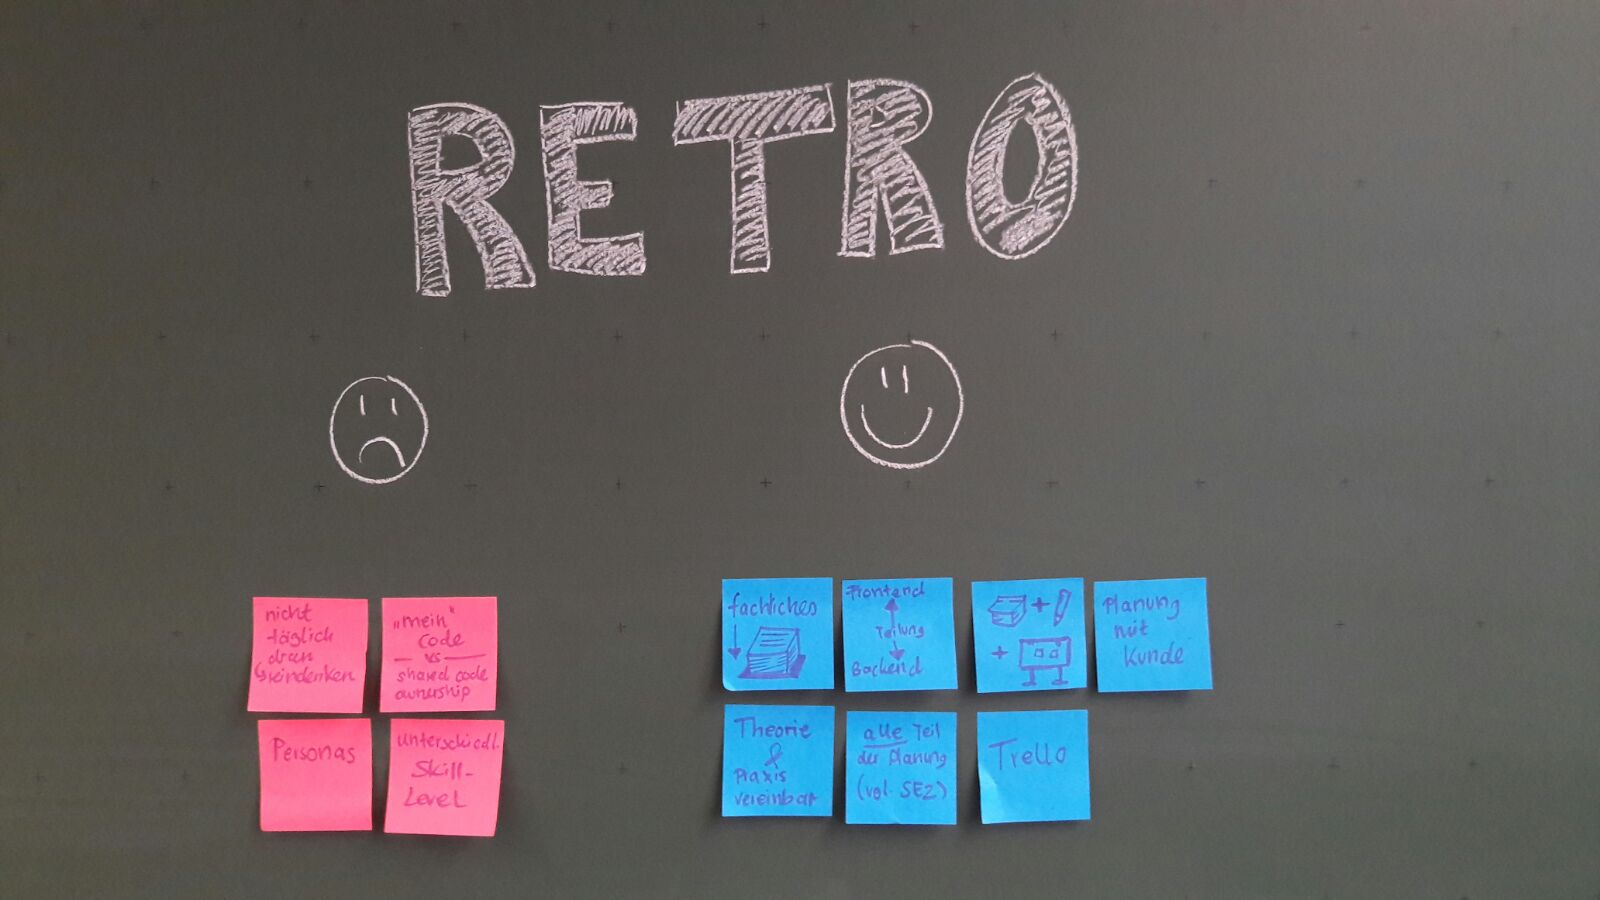 RETRO
nicht
täglich
dran
↳reindenken
„mein“
Code
— vs —
shared code
ownership
Personas
unterschiedl.
Skill-
Level
fachliches
Frontend
Teilung
Backend
+
+
Planung
mit
Kunde
Theorie
&
Praxis
vereinbar
alle Teil
der Planung
(vgl. SE2)
Trello